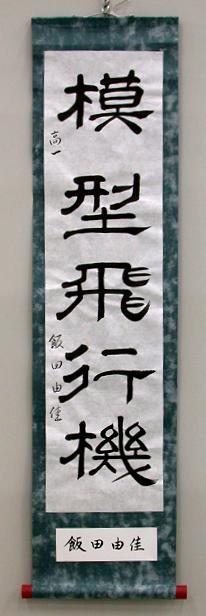 模型飛行機
高一 飯田由佳
飯田由佳